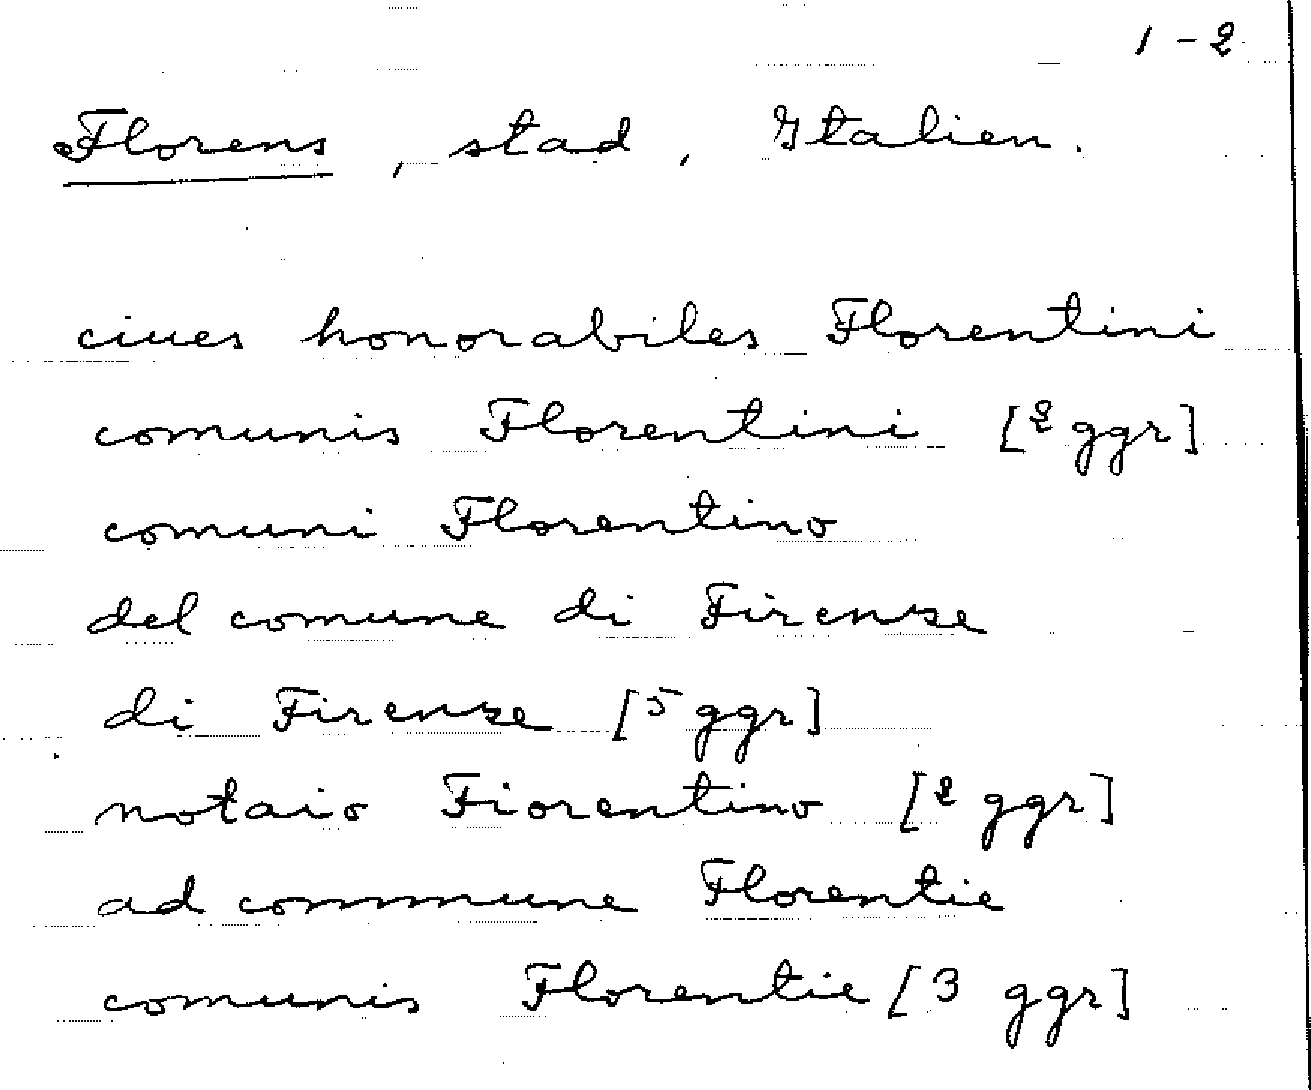 1-2
Florens, stad, Italien.
ciues honorabiles Florentini
comunis Florentini [2 ggr]
comuni Florentino
del comune di Firenze
di Firenze [5 ggr]
notaio Fiorentino [2 ggr]
ad commune Florentie
comunis Florentie [3 ggr]